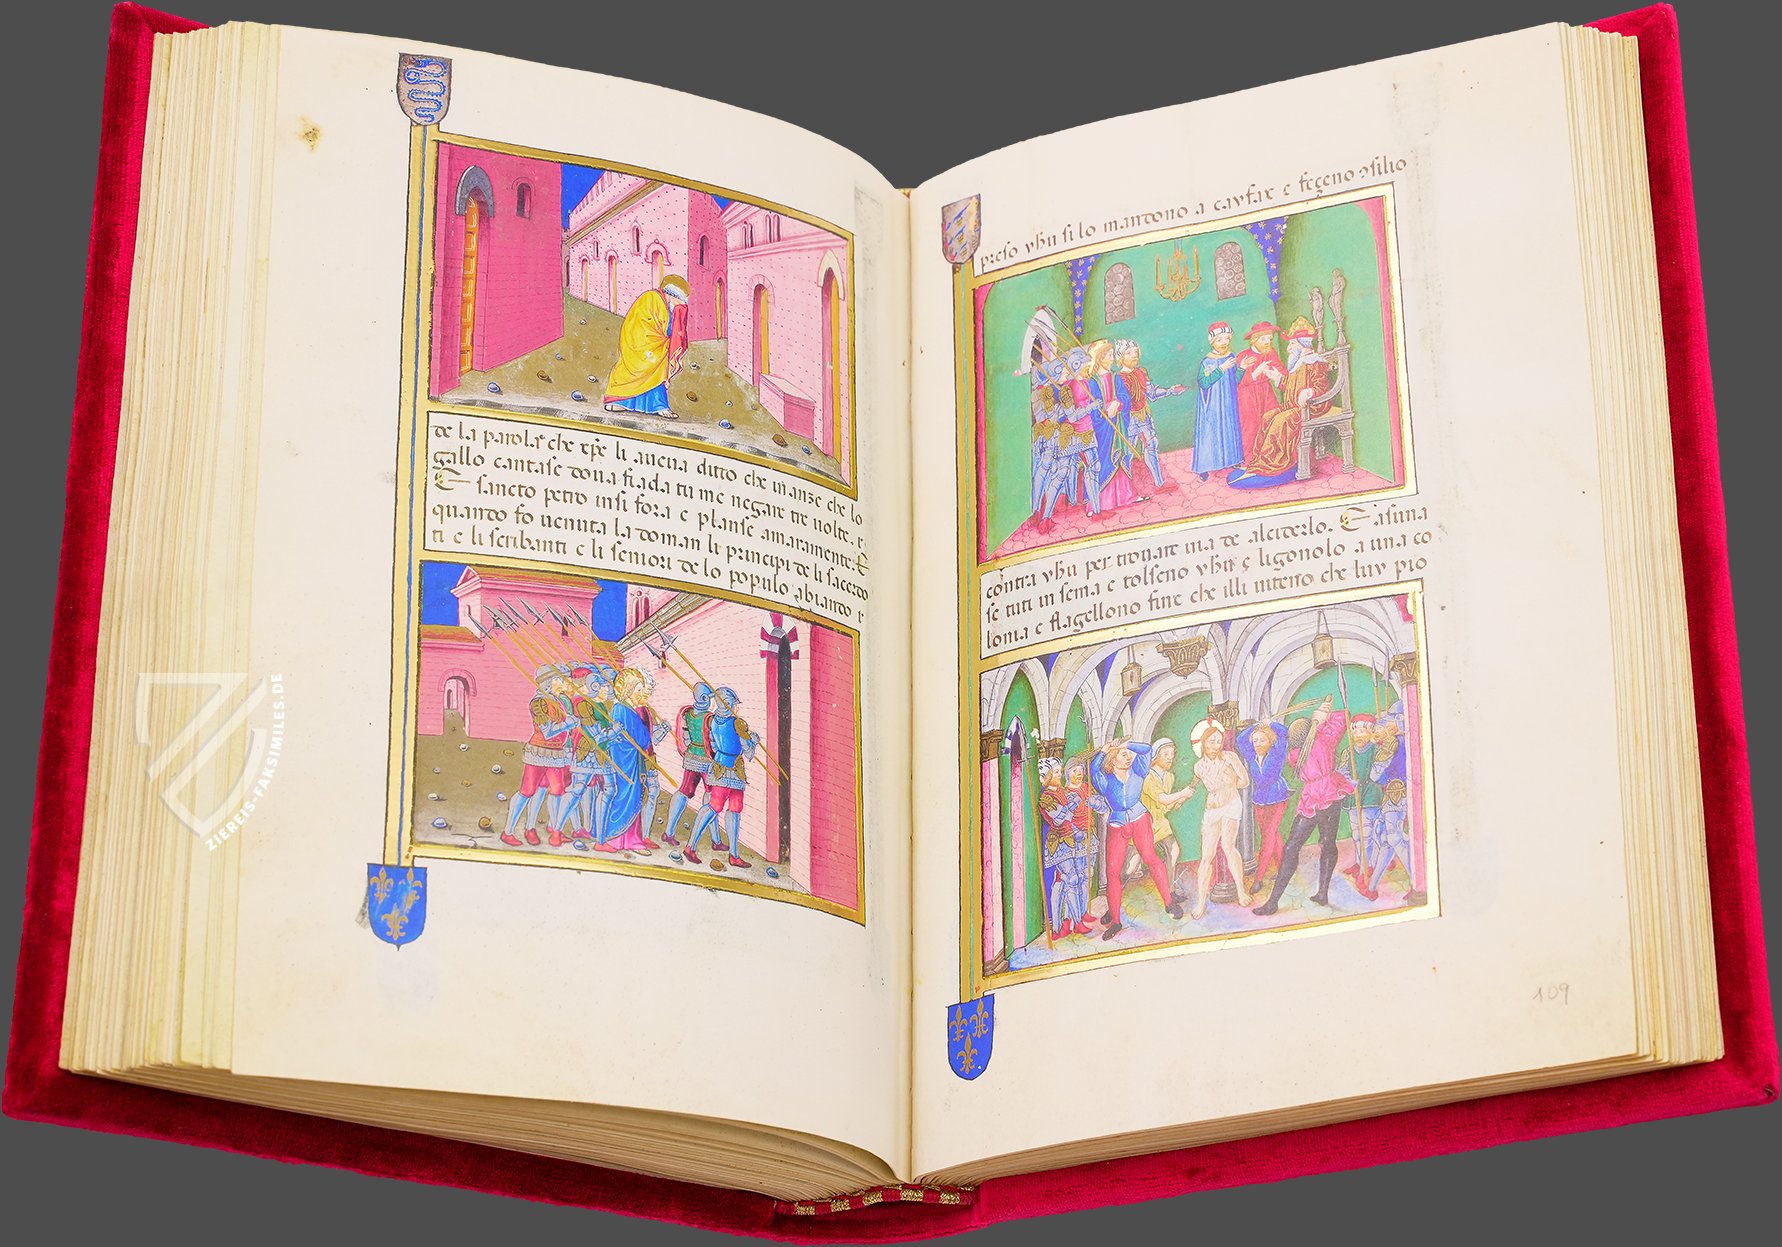 de la parola che xp̄e li aueua ditto che inanze che lo
gallo cantase doua fiada tu me negare tre uolte. E
E sancto petro insi fora e planse amaramente. E
quando fo uenuta la doman li principi de li sacerdo
ti e li scribanti e li seniori de lo populo abiando
preso yhū si lo mandono a cayfax e feceno ɔsilio
contra yhū per trouare uia de alciderlo. E asuna
se tuti insema e tolseno yhū e ligonolo a una co
lona e flagellono fine che illi uiteno che luy pio
109
ZIEREIS-FAKSIMILES.DE